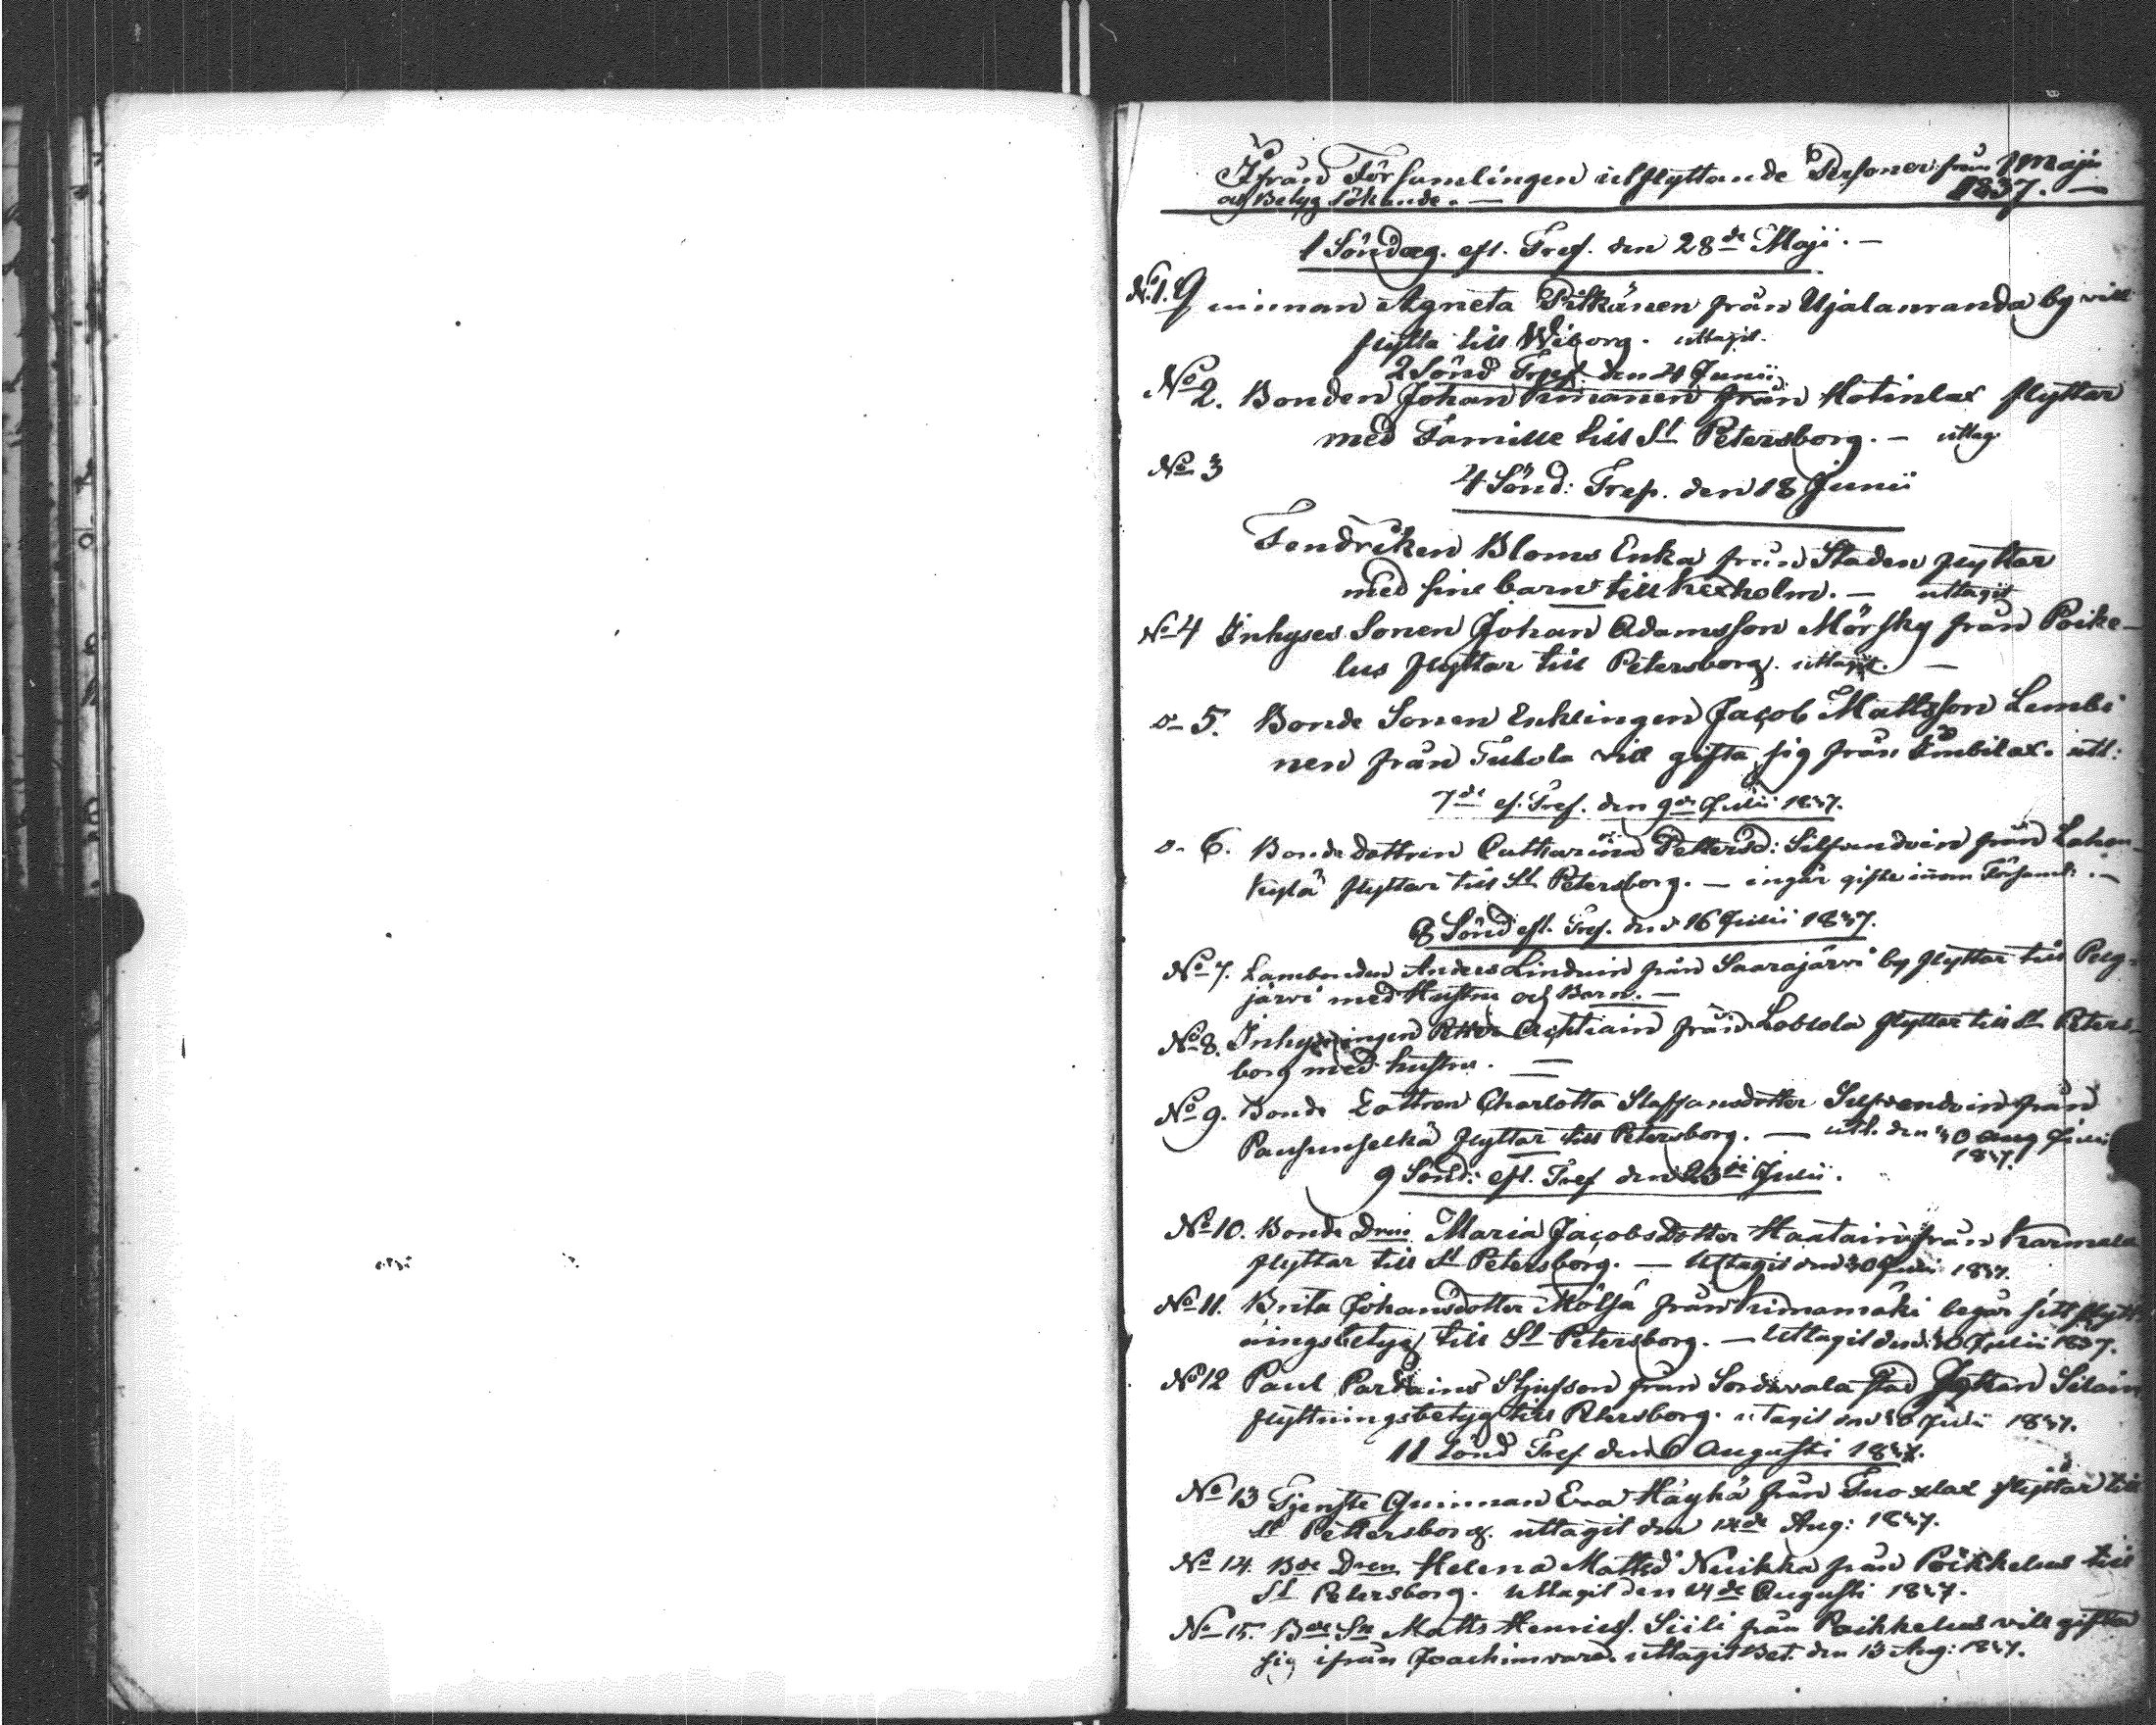 Ifrån Församlingen utflyttande Personer från 1 Maji
och Betyg sökande. — 1837. —
1 Söndag. eft. Tref. den 28de Maji. —
No 1. Quinnan Agneta Pitkänen från Ujalanranda by vill
flytta till Wiborg. uttagit.
2 Sönd Tref. den 4 Junii
No 2. Bonden Johan Kinanen från Kotinlax flyttar
med Famille till St Petersborg. — uttag.
No 3
4 Sönd: Tref. den 18 Junii
Fendriken Bloms Enka från Staden flyttar
med sine barn till Kexholm. — uttagit
No 4 Inhyses Sonen Johan Adamsson Mörsky från Poike-
lus flyttar till Petersborg. uttagit. —
o- 5. Bonde Sonen Enklingen Jacob Mattsson Lembi
nen från Tulola vill gifta sig från Imbilax. utt:
7de ef. Tref. den 9de Julii 1837.
o- 6. Bonde dottren Catharina Pettersd: Silfvendoin från Lahen-
kylä flyttar till St Petersborg. — ingår gifte inom Församl: —
8 Sönd eft. Tref. den 16 Julii 1837.
No 7. Lambonden Anders Linduin från Saarajärvi by flyttar till Pelg-
järvi med Hustru och Barn. —
No 8. Inhysingen Petter Achtiain från Lobtola flyttar till St Peters-
borg med hustru. —
No 9. Bonde Dottren Charlotta Staffansdotter Silfvendoin från
Pausunselkä flyttar till Petersborg. — utt. den 30 Julii
1837.
9 Sönd: eft. Tref den 23de Julii.
No 10. Bonde Dren Maria Jacobsdotter Haatain från Karmala
flyttar till St Petersborg. — Uttagit den 30 Julii 1837.
No 11. Brita Johansdotter Mölsä från Kimamäki begär sitt flytt
ningsbetyg till St Petersborg. — Uttagit den 30 Julii 1837.
No 12 Paul Pardains Stjufson från Sordavala stad Johan Silain
flyttningsbetyg till Petersborg. uttagit den 30 Julii 1837.
11 Sönd Tref. den 6 Augusti 1837.
No 13 Tjenste Quinnan Eva Häyhä från Tuoxlax flyttar till
St Pettersborg. uttagit den Aug: 1837.
No 14. Bde Dren Helena Mattsd Nuikka från Poikkelus till
St Petersborg. Uttagit den 14de Augusti 1837.
No 15. Bde Sn Matts Henrics. Siili från Poikkelus vill gifta
sig ifrån Joachimvara. uttagit Bet. den 13 Aug: 1837.